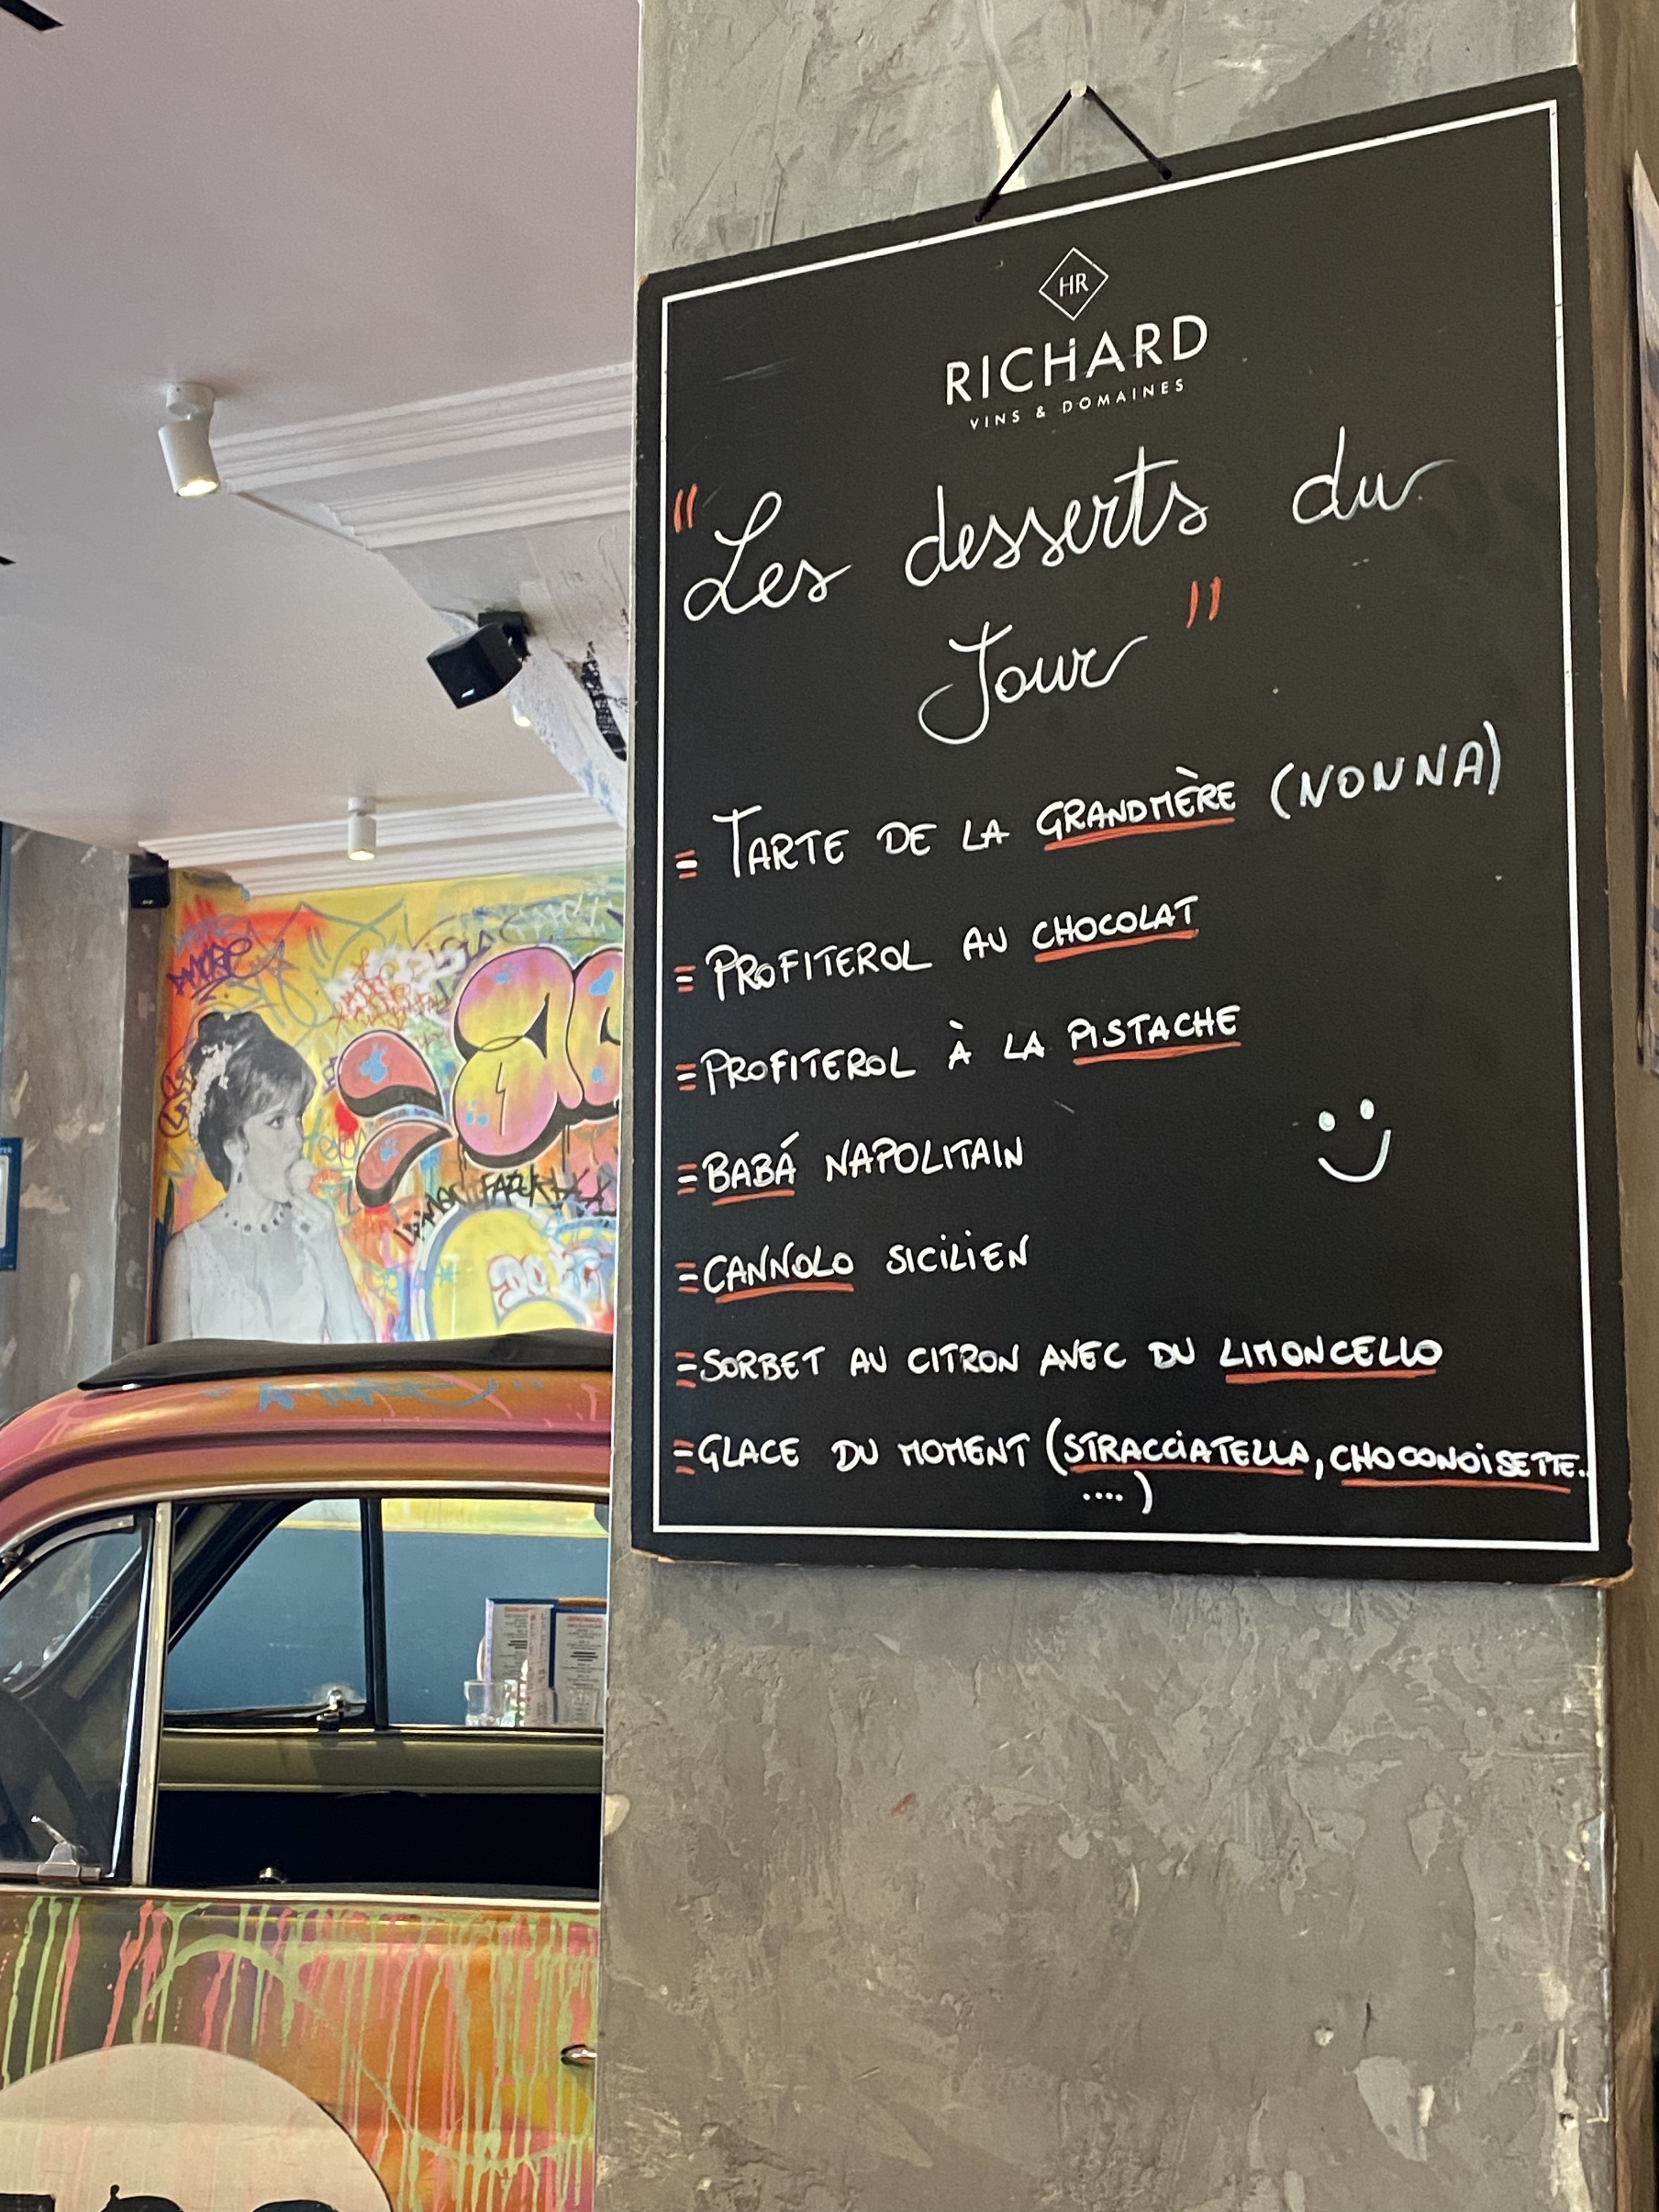 HR
RICHARD
VINS & DOMAINES
"Les desserts du
Jour"
= TARTE DE LA GRANDMÈRE (NONNA)
= PROFITEROL AU CHOCOLAT
= PROFITEROL À LA PISTACHE
= BABÁ NAPOLITAIN
= CANNOLO SICILIEN
= SORBET AU CITRON AVEC DU LIMONCELLO
= GLACE DU MOMENT (STRACCIATELLA, CHOCONOISETTE.
....)